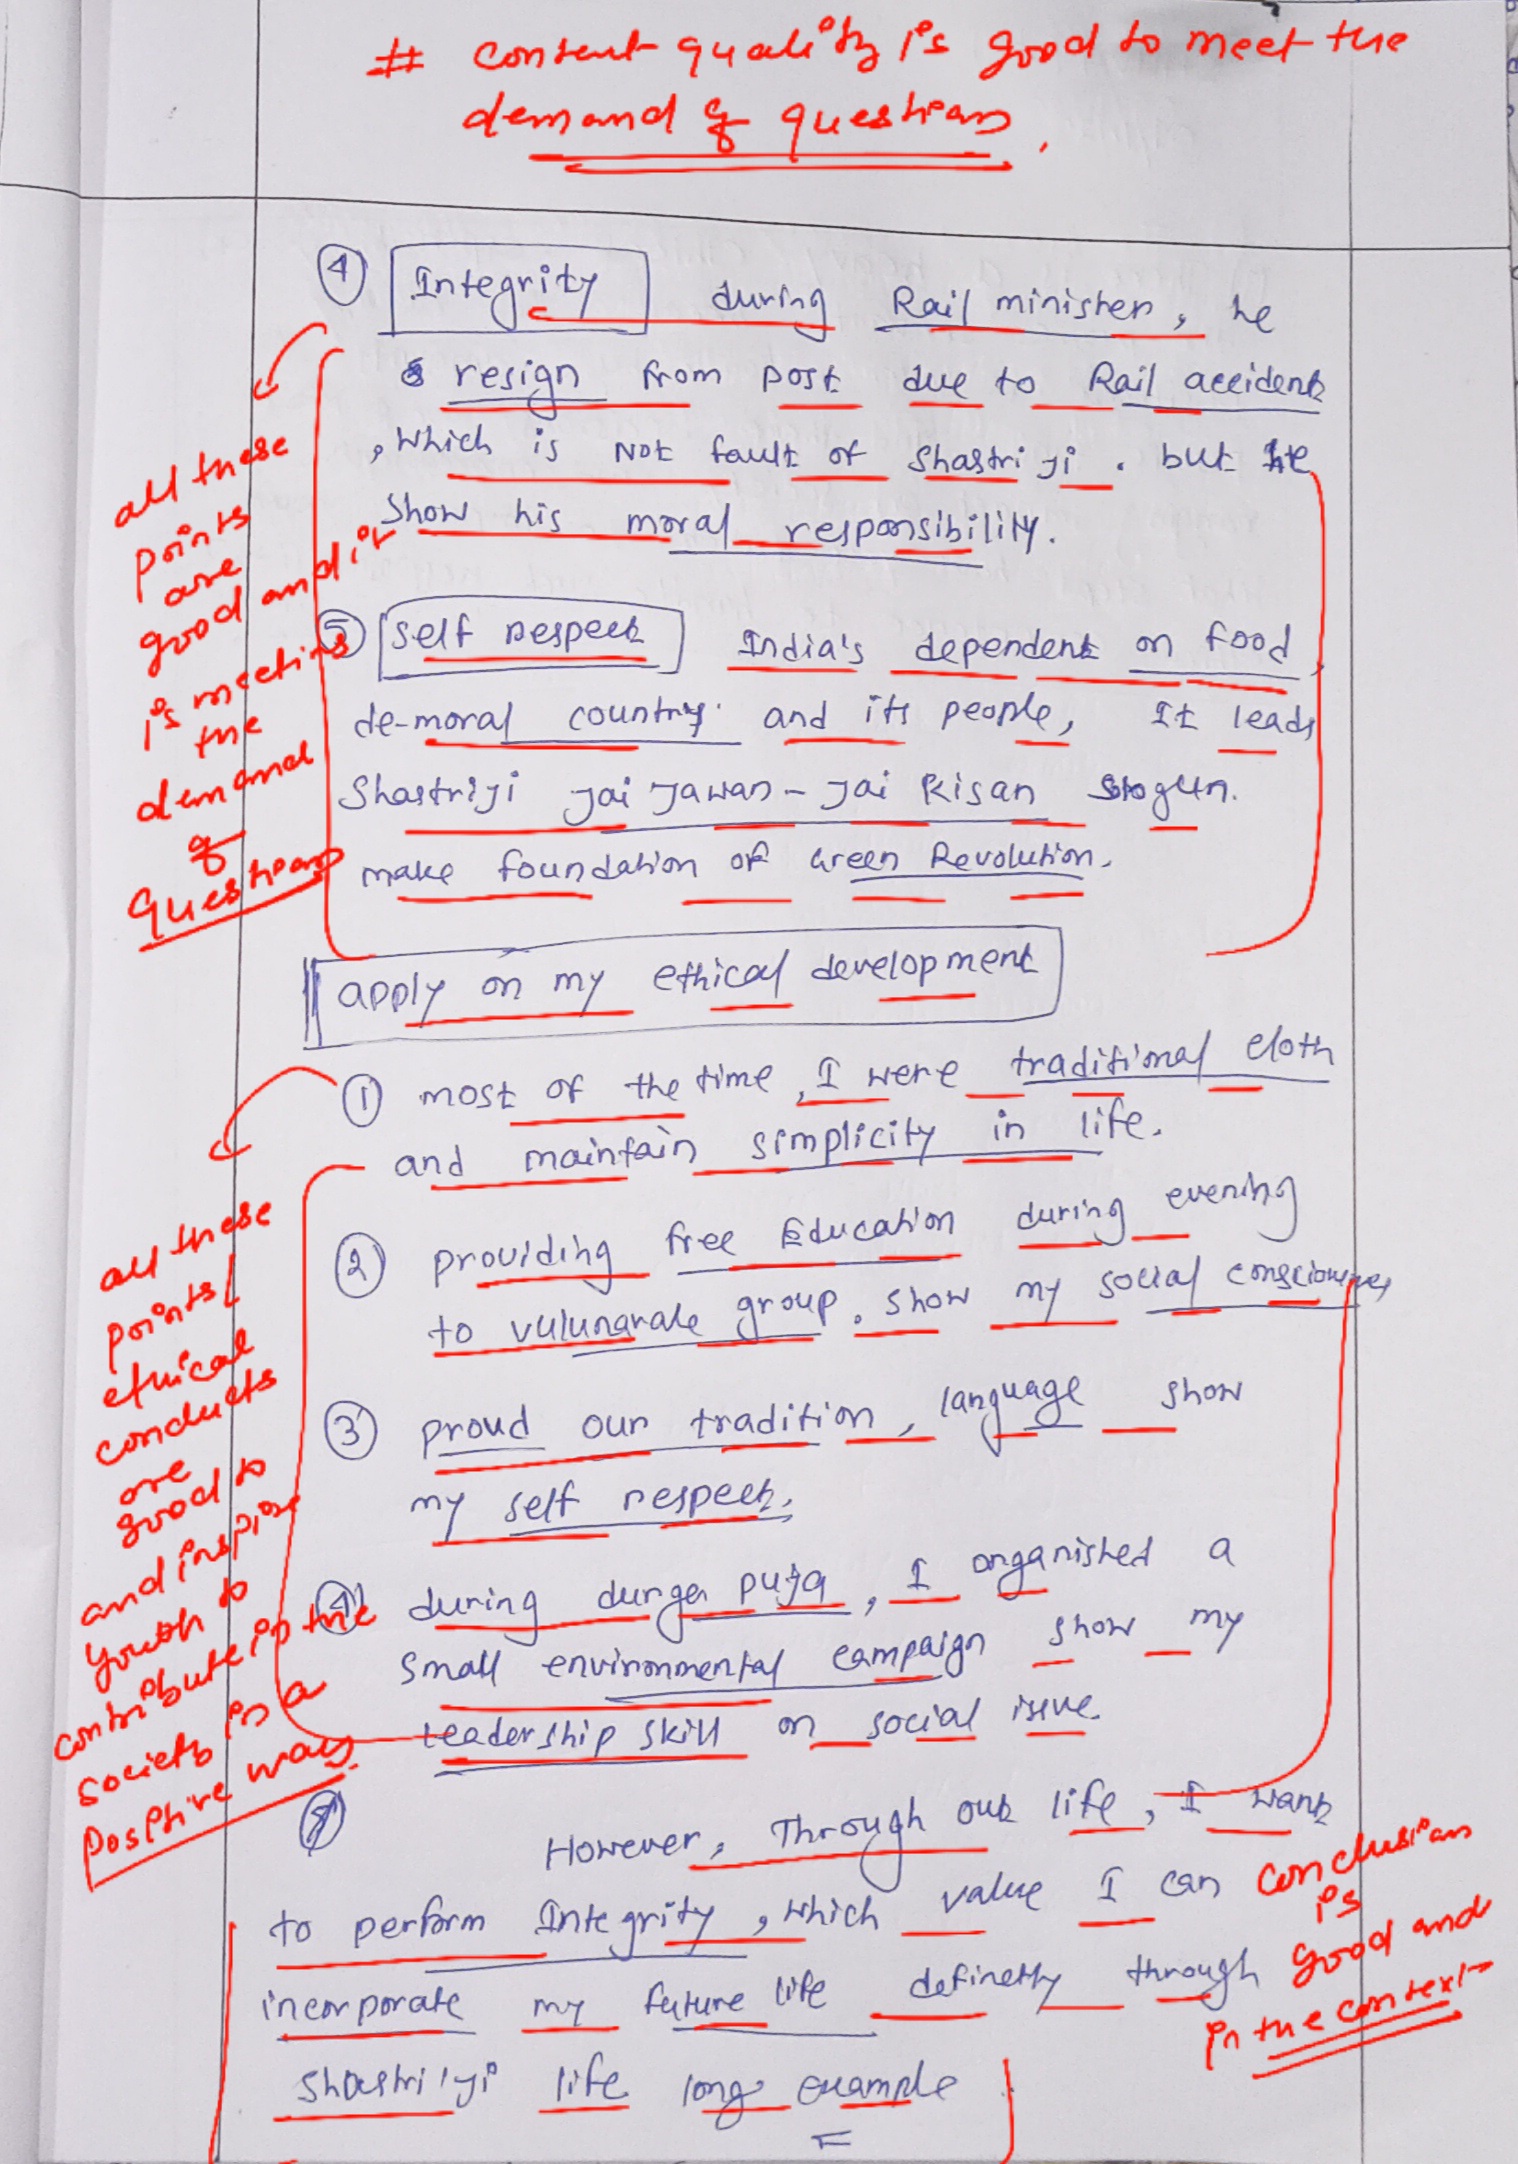 # content quality is good to meet the
demand of questions.
④ Integrity during Rail minister, he
resign from post due to Rail accident
, which is Not fault of Shastri ji. but he
show his moral responsibility.
all these
points
are
good and it
is meeting
the
demand
of
questions
⑤ self respect India's dependent on food,
de-moral country. and its people, It leads
Shastriji jai Jawan - Jai Kisan slogun.
make foundation of Green Revolution.
apply on my ethical development
① most of the time, I were traditional cloth
and maintain simplicity in life.
② providing free Education during evening
to vulunarale group. show my social consciousnes
③ proud our tradition, language show
my self respect.
④ during durga puja, I organished a
small environmental campaign show my
leadership skill on social issue.
all these
points/
ethical
conducts
are
good to
and inspire
youth to
contribute in the
society in a
positive way
However, Through out life, I want
to perform Integrity, which value I can
incorporate my future life definetly through
Shastri iji life long example
conclusion
is
good and
in the context